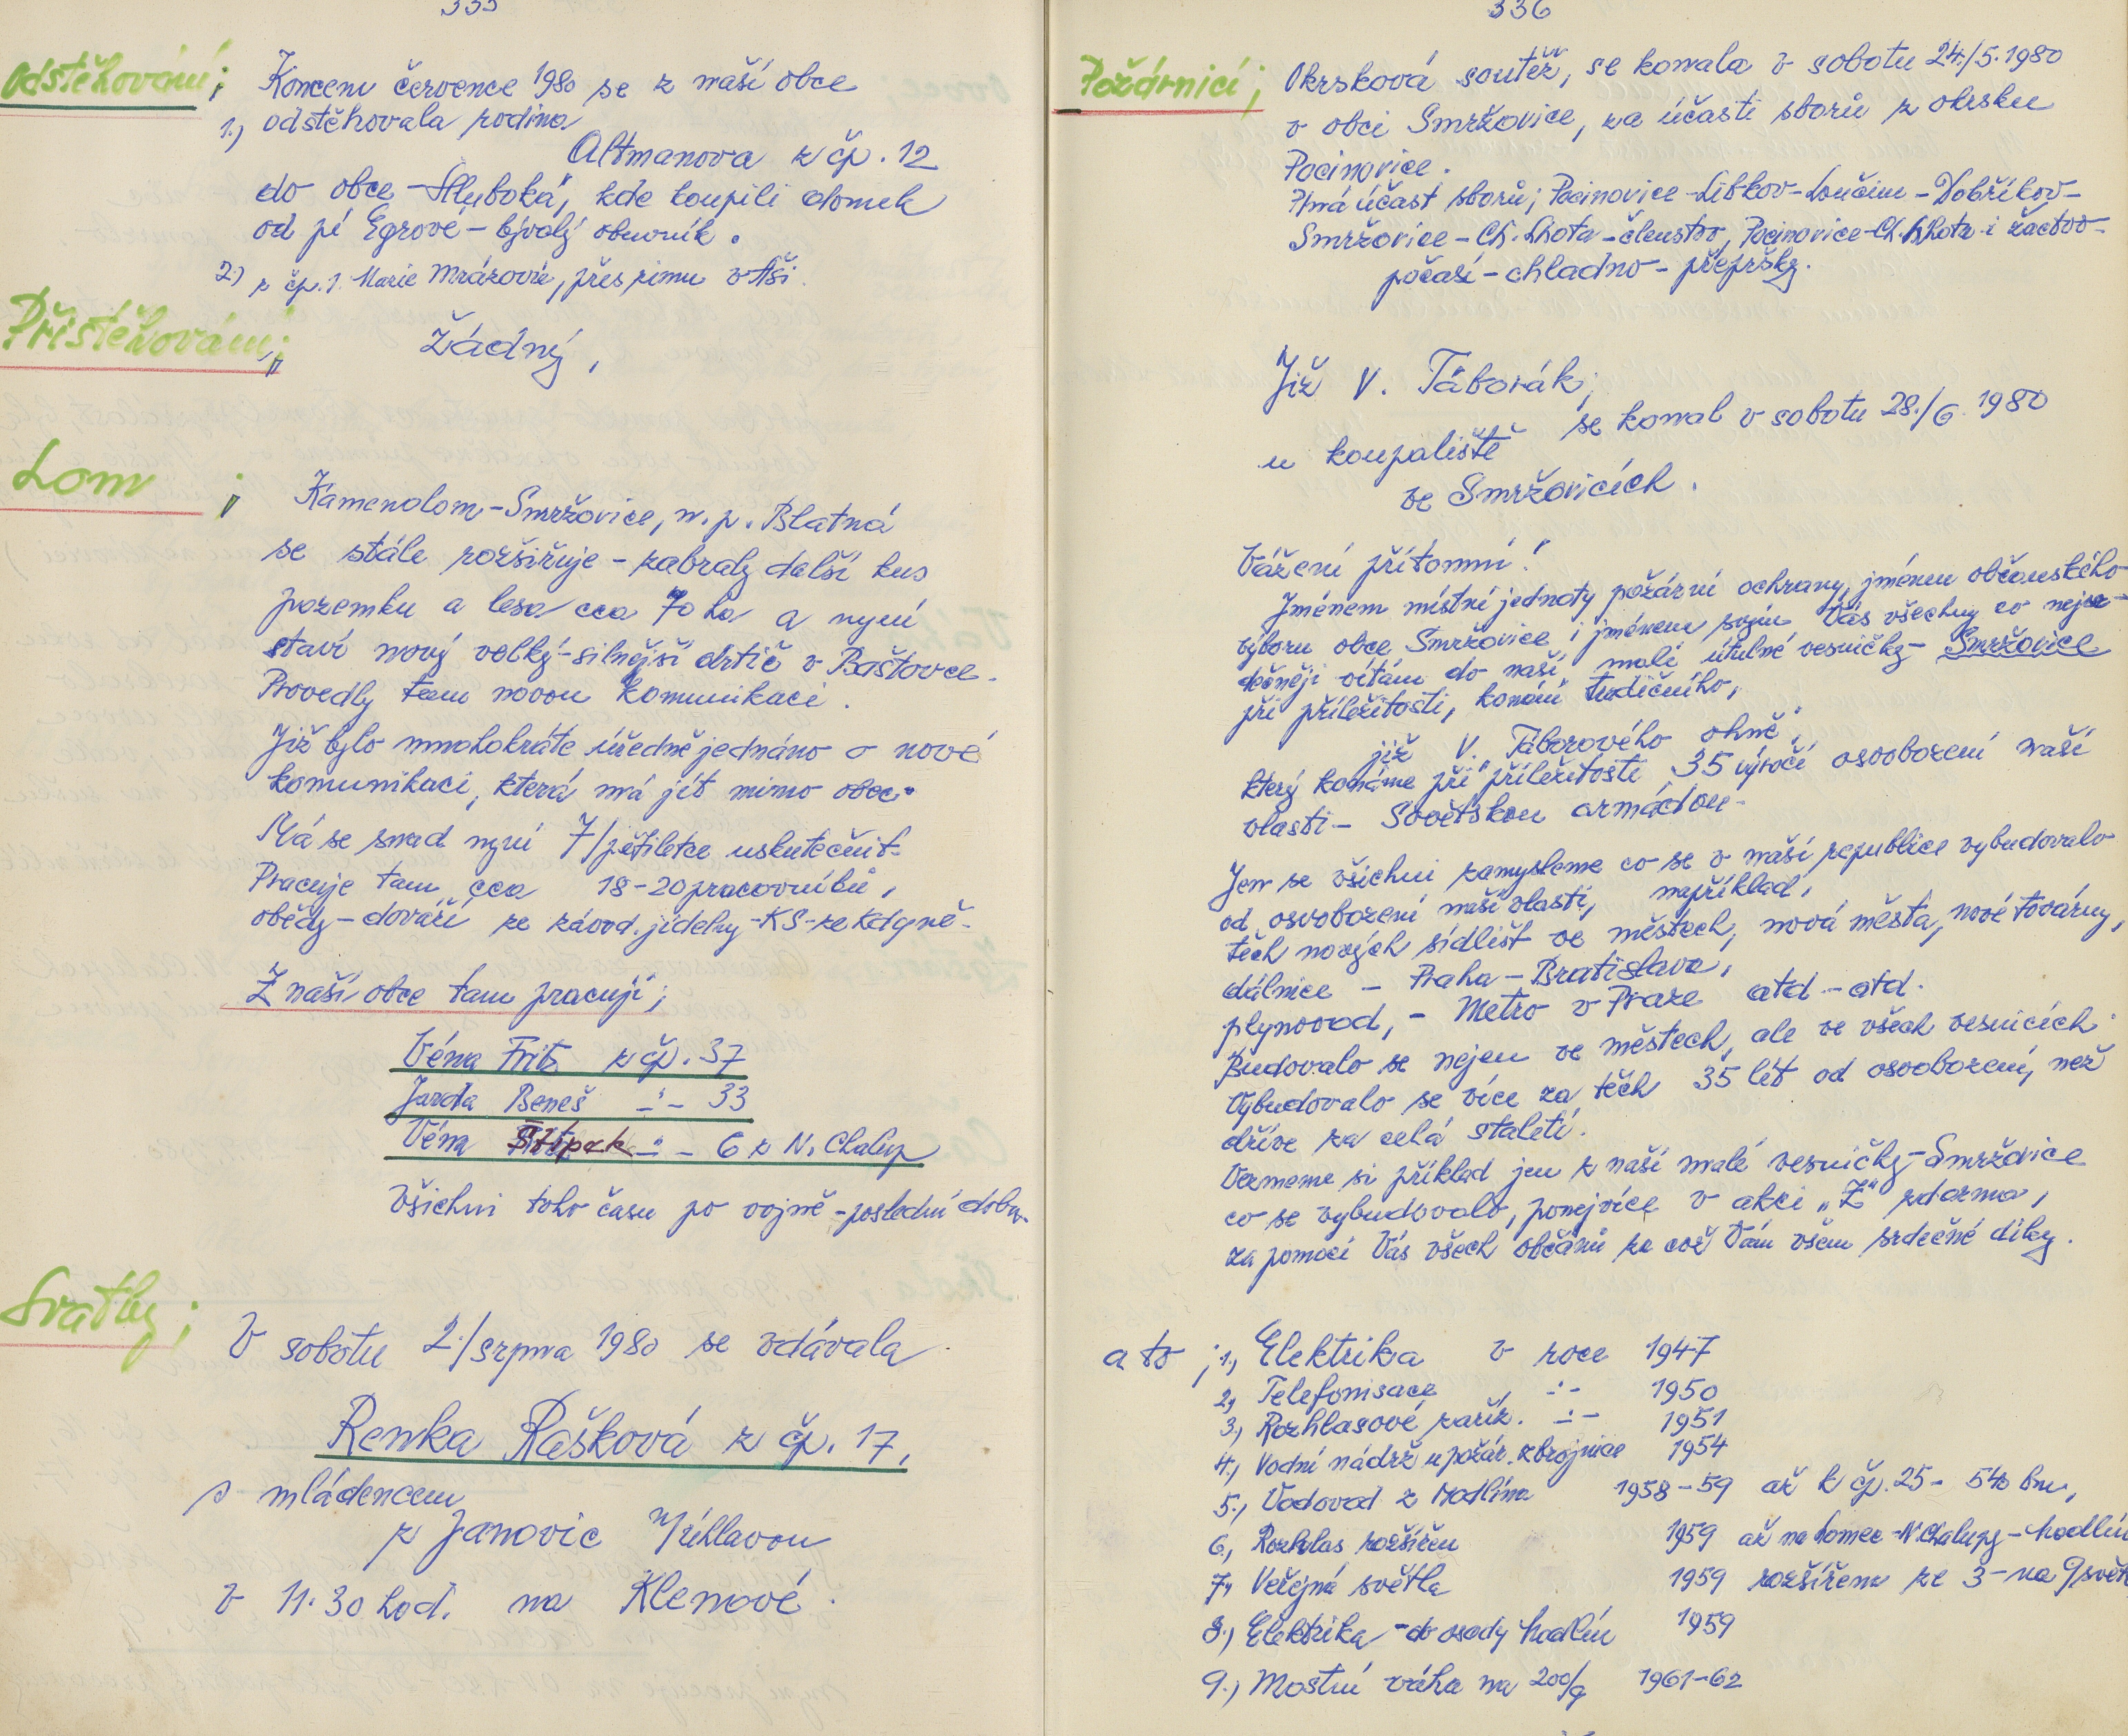 335
Odstěhování;
Koncem července 1980 se z naší obce
1.) odstěhovala rodina
Altmanova z čp. 12
do obce - Hluboká, kde koupili domek
od pí Egrové - bývalý obuvník.
2.) z čp. 1. Marie Mrázová, přes zimu v Aši.
Přistěhování;
Žádný,
Lom;
Kamenolom - Smržovice, n. p. Blatná
se stále rozšiřuje - zabraly další kus
pozemku a lesa cca 70 ha a nyní
staví nový velký - silnější drtič v Baštovce.
Provedly tam novou komunikaci.
Již bylo mnohokráte úředně jednáno o nové
komunikaci, která má jít mimo obec.
Má se snad nyní 7/pětiletce uskutečnit.
Pracuje tam cca 18-20 pracovníků,
obědy - dováží ze závod. jídelny - KS - ze Kdyně -
Z naší obce tam pracují;
Véna Frits z čp. 37
Jarda Beneš -:- 33
Véna Štípek -:- 6 z N. Chalup
Všichni toho času po vojně - poslední dobu.
Svatby;
V sobotu 2./srpna 1980 se vdávala
Renka Rašková z čp. 17,
s mládencem
z Janovic N/Úhlavou
v 11.30 hod. na Klenové.
336
Požárníci;
Okrsková soutěž, se konala v sobotu 24./5.1980
v obci Smržovice, za účasti sborů z okrsku
Pocinovice.
Plná účast sborů; Pocinovice - Libkov - Loučim - Dobříkov -
Smržovice - Ch. Lhota - členstvo, Pocinovice - Ch. Lhota i žactvo -
počasí - chladno - přepršky.
Již V. Táborák;
se konal v sobotu 28./6. 1980
u koupaliště
ve Smržovicích.
Vážení přítomní!
Jménem místní jednoty požární ochrany, jménem občanského
výboru obce Smržovice, i jménem svým Vás všechny co nejsr-
dečněji vítám do naší malé útulné vesničky - Smržovice
při příležitosti, konání tradičního,
již V. Táborového ohně,
který konáme při příležitosti 35 výročí osvobození naší
vlasti - Sovětskou armádou -
Jen se všichni zamysleme co se v naší republice vybudovalo
od osvobození naší vlasti, například,
těch nových sídlišť ve městech, nová města, nové továrny,
dálnice - Praha - Bratislava,
plynovod, - Metro v Praze atd - atd.
Budovalo se nejen ve městech, ale ve všech vesnicích.
Vybudovalo se více za těch 35 lét od osvobození, než
dříve za celá staletí.
Vezmeme si příklad jen z naší malé vesničky - Smržovice
co se vybudovalo, ponejvíce v akci „Z" zdarma,
za pomoci Vás všech občanů za což Vám všem srdečné díky.
a to; 1., Elektrika v roce 1947
2., Telefonisace -:- 1950
3., Rozhlasové zaříz. -:- 1951
4., Vodní nádrž u požár. zbrojnice 1954
5., Vodovod z Modlína 1958-59 až k čp. 25 - 540 bm,
6., Rozhlas rozšířen 1959 až na Lomec - N. Chalupy - hodlín
7., Veřejná světla 1959 rozšířena ze 3 - na 9 svět
8.) Elektrika - do osady hodlín 1959
9.) Mostní váha na 200/q 1961-62